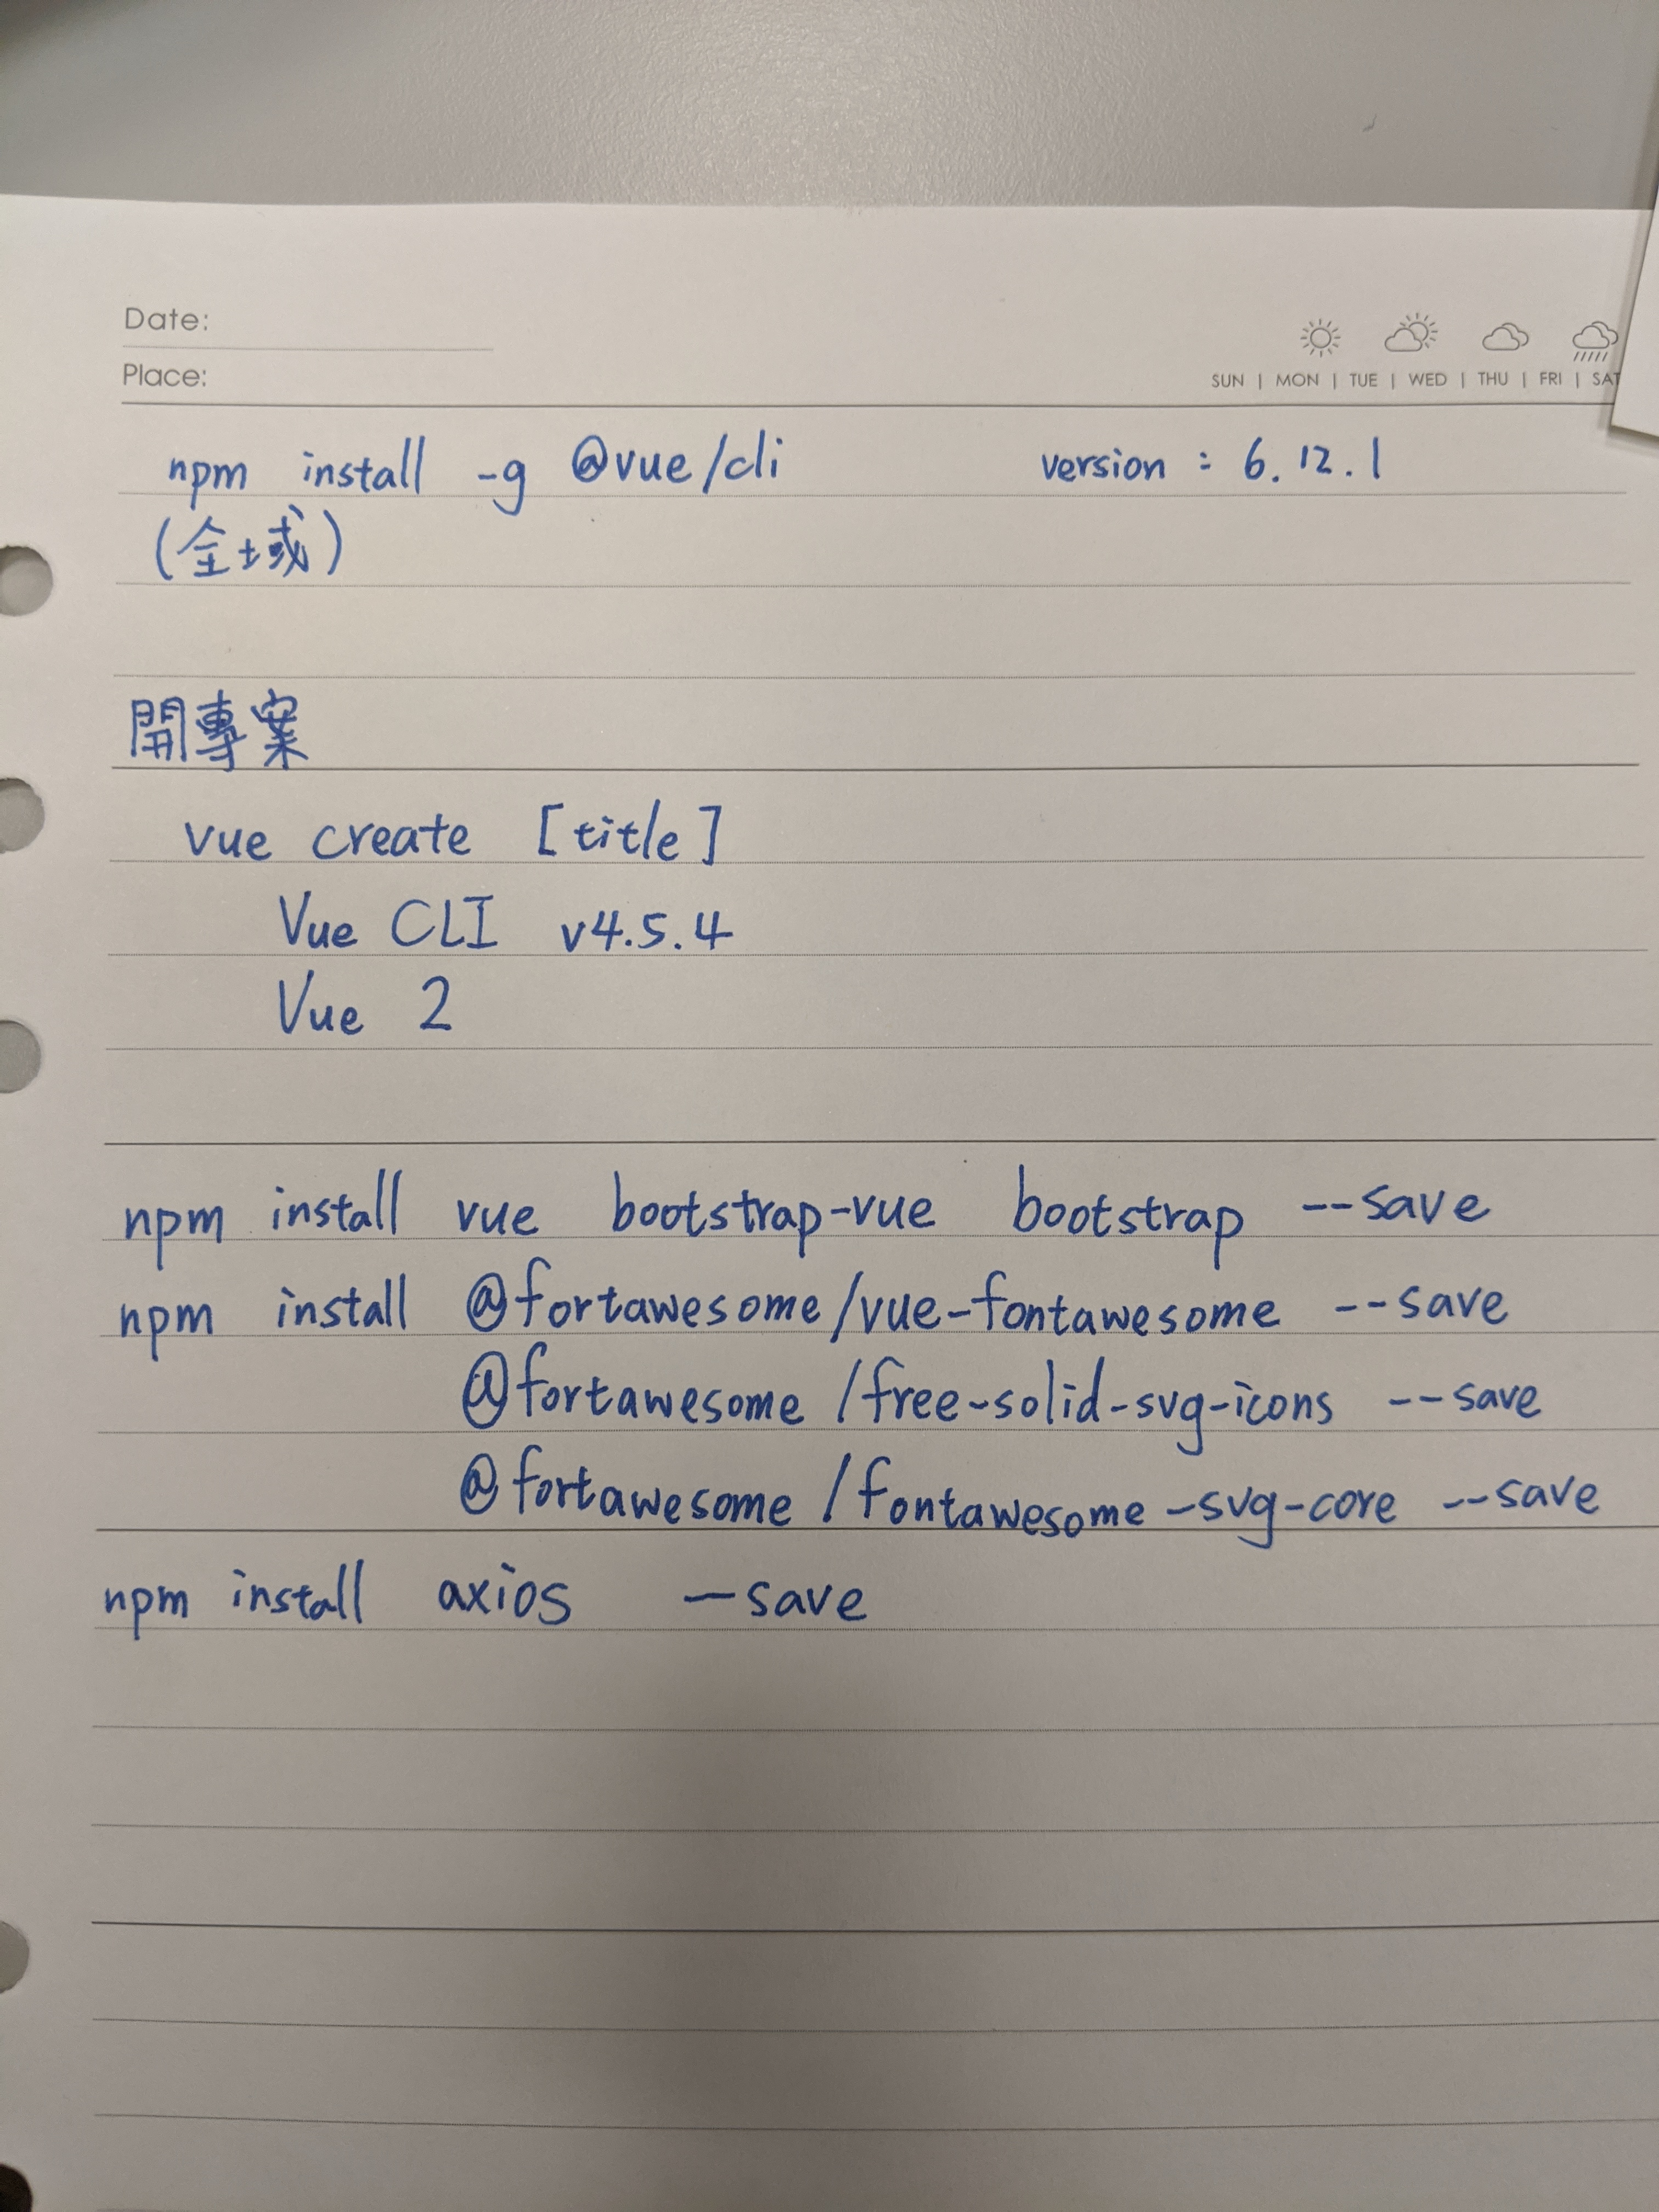 Date:
Place:
SUN | MON | TUE | WED | THU | FRI | SAT
npm install -g @vue/cli version : 6.12.1
(全域)
開專案
vue create [title]
Vue CLI v4.5.4
Vue 2
npm install vue bootstrap-vue bootstrap --save
npm install @fortawesome/vue-fontawesome --save
@fortawesome/free-solid-svg-icons --save
@fortawesome/fontawesome-svg-core --save
npm install axios —save